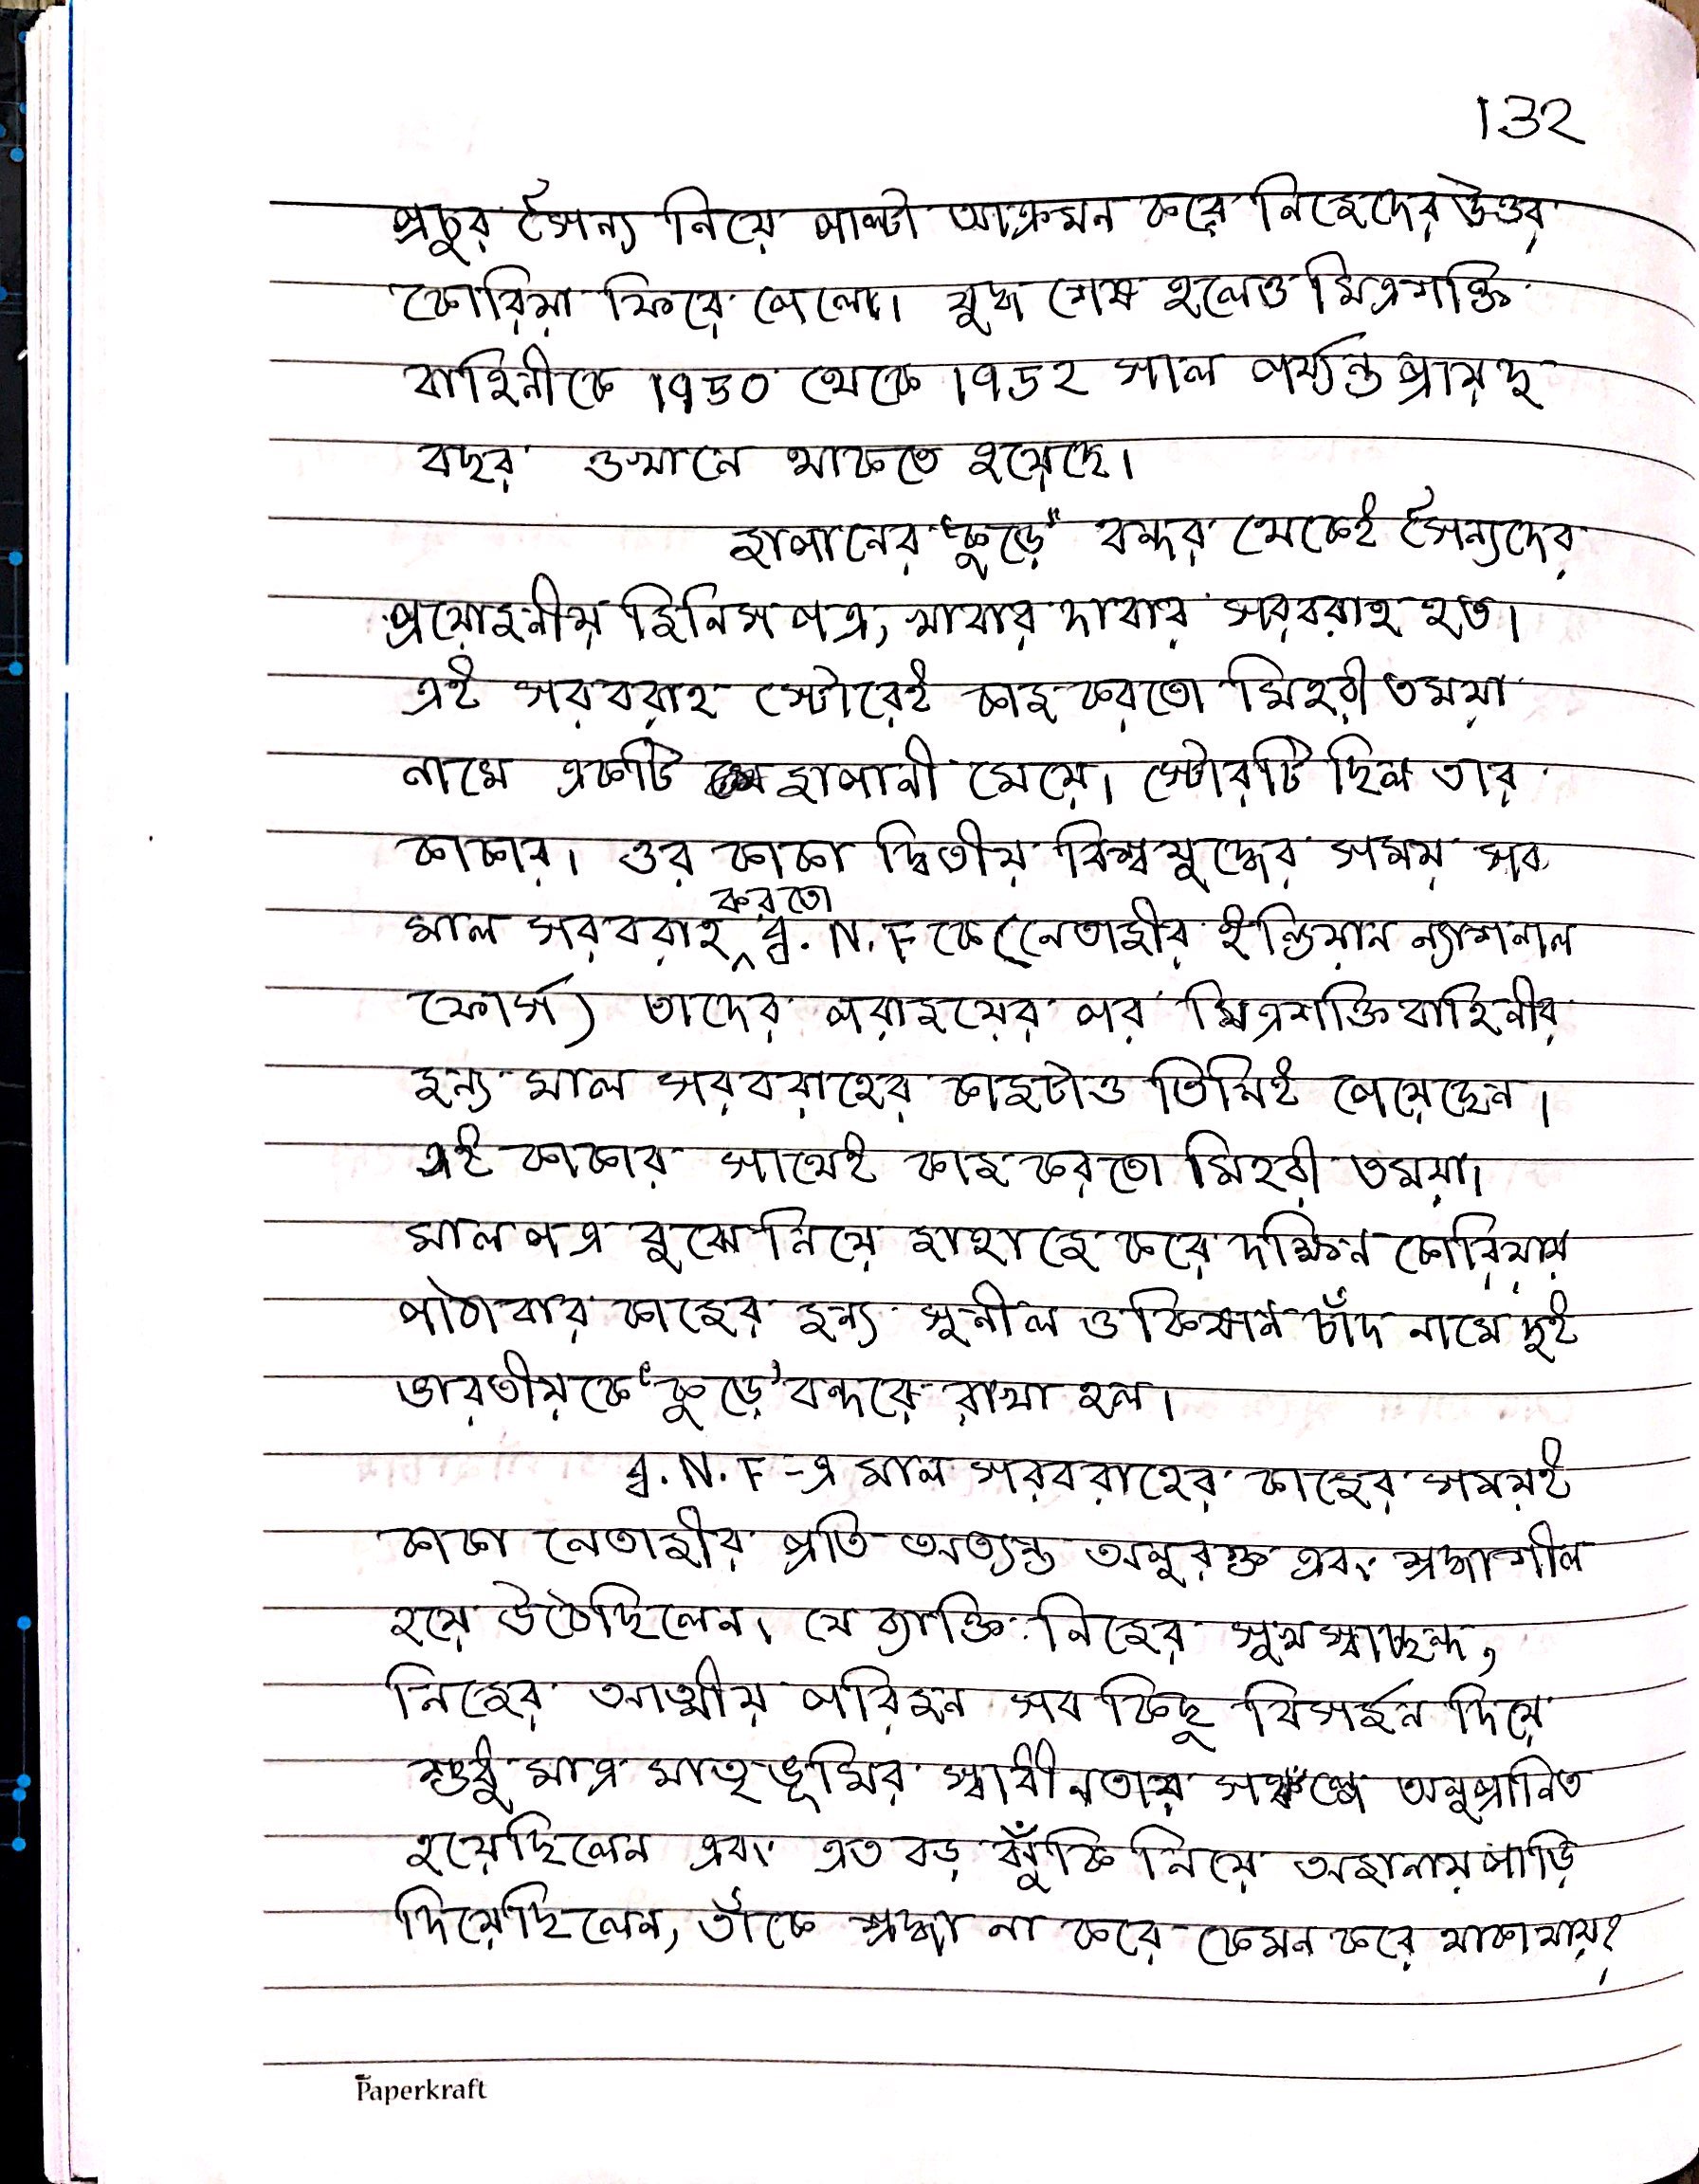 132
প্রচুর সৈন্য নিয়ে পাল্টা আক্রমন করে নিজেদের উত্তর
কোরিয়া ফিরে পেলো। যুদ্ধ শেষ হলেও মিত্রশক্তি
বাহিনীকে 1950 থেকে 1952 সাল পর্য্যন্ত প্রায় দু
বছর ওখানে থাকতে হয়েছে।
জাপানের "কুড়ে" বন্দর থেকেই সৈন্যদের
প্রয়োজনীয় জিনিস পত্র, খাবার দাবার সরবরাহ হত।
এই সরবরাহ স্টোরেই কাজ করতো মিহরী তময়া
নামে একটি জাপানী মেয়ে। স্টোরটি ছিল তার
কাকার। ওর কাকা দ্বিতীয় বিশ্বযুদ্ধের সময় সব
মাল সরবরাহ করতো I.N.F কে (নেতাজীর ইন্ডিয়ান ন্যাশনাল
ফোর্স) তাদের পরাজয়ের পর মিত্রশক্তি বাহিনীর
জন্য মাল সরবরাহের কাজটাও তিনিই পেয়েছেন।
এই কাকার সাথেই কাজ করতো মিহরী তময়া।
মালপত্র বুঝে নিয়ে জাহাজে করে দক্ষিন কোরিয়ায়
পাঠাবার কাজের জন্য সুনীল ও কিষান চাঁদ নামে দুই
ভারতীয়কে 'কুড়ে' বন্দরে রাখা হল।
I.N.F -এ মাল সরবরাহের কাজের সময়ই
কাকা নেতাজীর প্রতি অত্যন্ত অনুরক্ত এবং শ্রদ্ধাশীল
হয়ে উঠেছিলেন। যে ব্যাক্তি নিজের সুখস্বাচ্ছন্দ,
নিজের আত্মীয় পরিজন সব কিছু বিসর্জন দিয়ে
শুধু মাত্র মাতৃভূমির স্বাধীনতার সঙ্কল্পে অনুপ্রানিত
হয়েছিলেন এবং এত বড় ঝুঁকি নিয়ে অজানায় পাড়ি
দিয়েছিলেন, তাঁকে শ্রদ্ধা না করে কেমন করে থাকা যায়?
Paperkraft